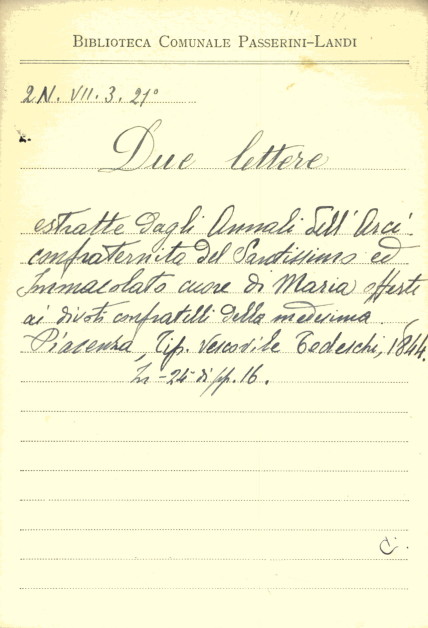 BIBLIOTECA COMUNALE PASSERINI-LANDI
2N. VII. 3. 21°
Due lettere
estratte dagli Annali dell'Arci-
confraternita del Santissimo ed
Immacolato cuore di Maria offerte
ai divoti confratelli della medesima.
Piacenza, Tip. Vescovile Tedeschi, 1844.
In-24 di pp. 16.